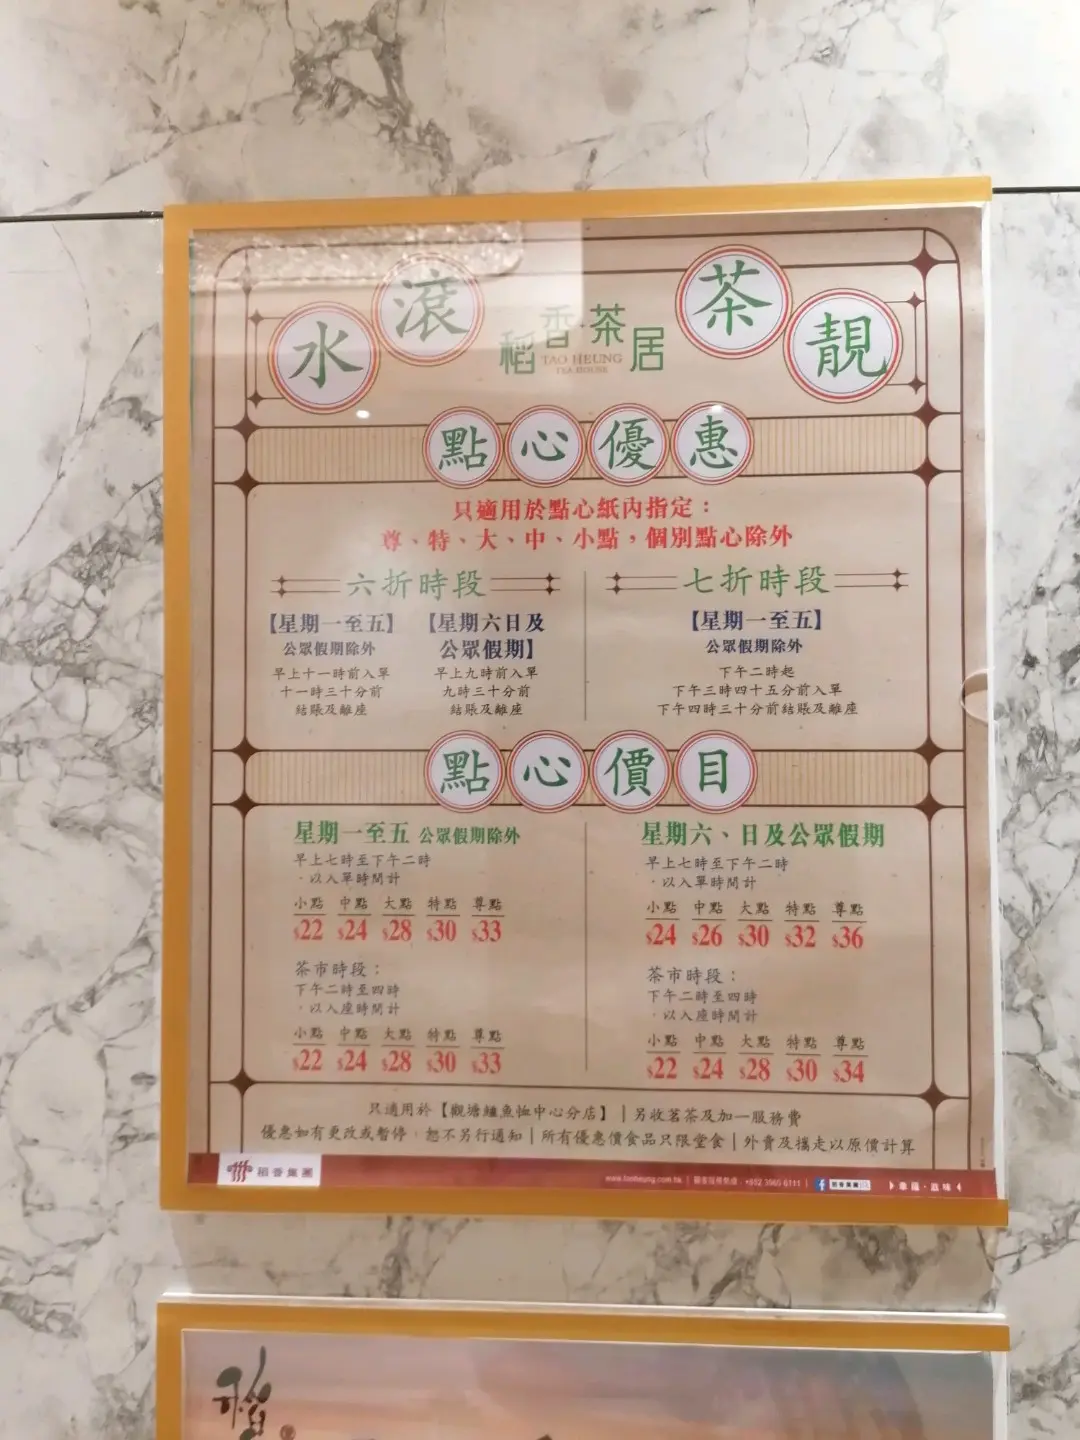 水滾茶靚
稻香茶居
TAO HEUNG
TEA HOUSE
點心優惠
只適用於點心紙內指定：
尊、特、大、中、小點，個別點心除外
六折時段
【星期一至五】
公眾假期除外
早上十一時前入單
十一時三十分前
結賬及離座
【星期六日及
公眾假期】
早上九時前入單
九時三十分前
結賬及離座
七折時段
【星期一至五】
公眾假期除外
下午二時起
下午三時四十五分前入單
下午四時三十分前結賬及離座
點心價目
星期一至五 公眾假期除外
早上七時至下午二時
·以入單時間計
小點 中點 大點 特點 尊點
$22 $24 $28 $30 $33
茶市時段：
下午二時至四時
·以入座時間計
小點 中點 大點 特點 尊點
$22 $24 $28 $30 $33
星期六、日及公眾假期
早上七時至下午二時
·以入單時間計
小點 中點 大點 特點 尊點
$24 $26 $30 $32 $36
茶市時段：
下午二時至四時
·以入座時間計
小點 中點 大點 特點 尊點
$22 $24 $28 $30 $34
只適用於【觀塘鱷魚恤中心分店】｜另收茗茶及加一服務費
優惠如有更改或暫停，恕不另行通知｜所有優惠價食品只限堂食｜外賣及攜走以原價計算
稻香集團
www.taoheung.com.hk | +852 3960 6111 | 稻香集團 幸福·滋味
稻